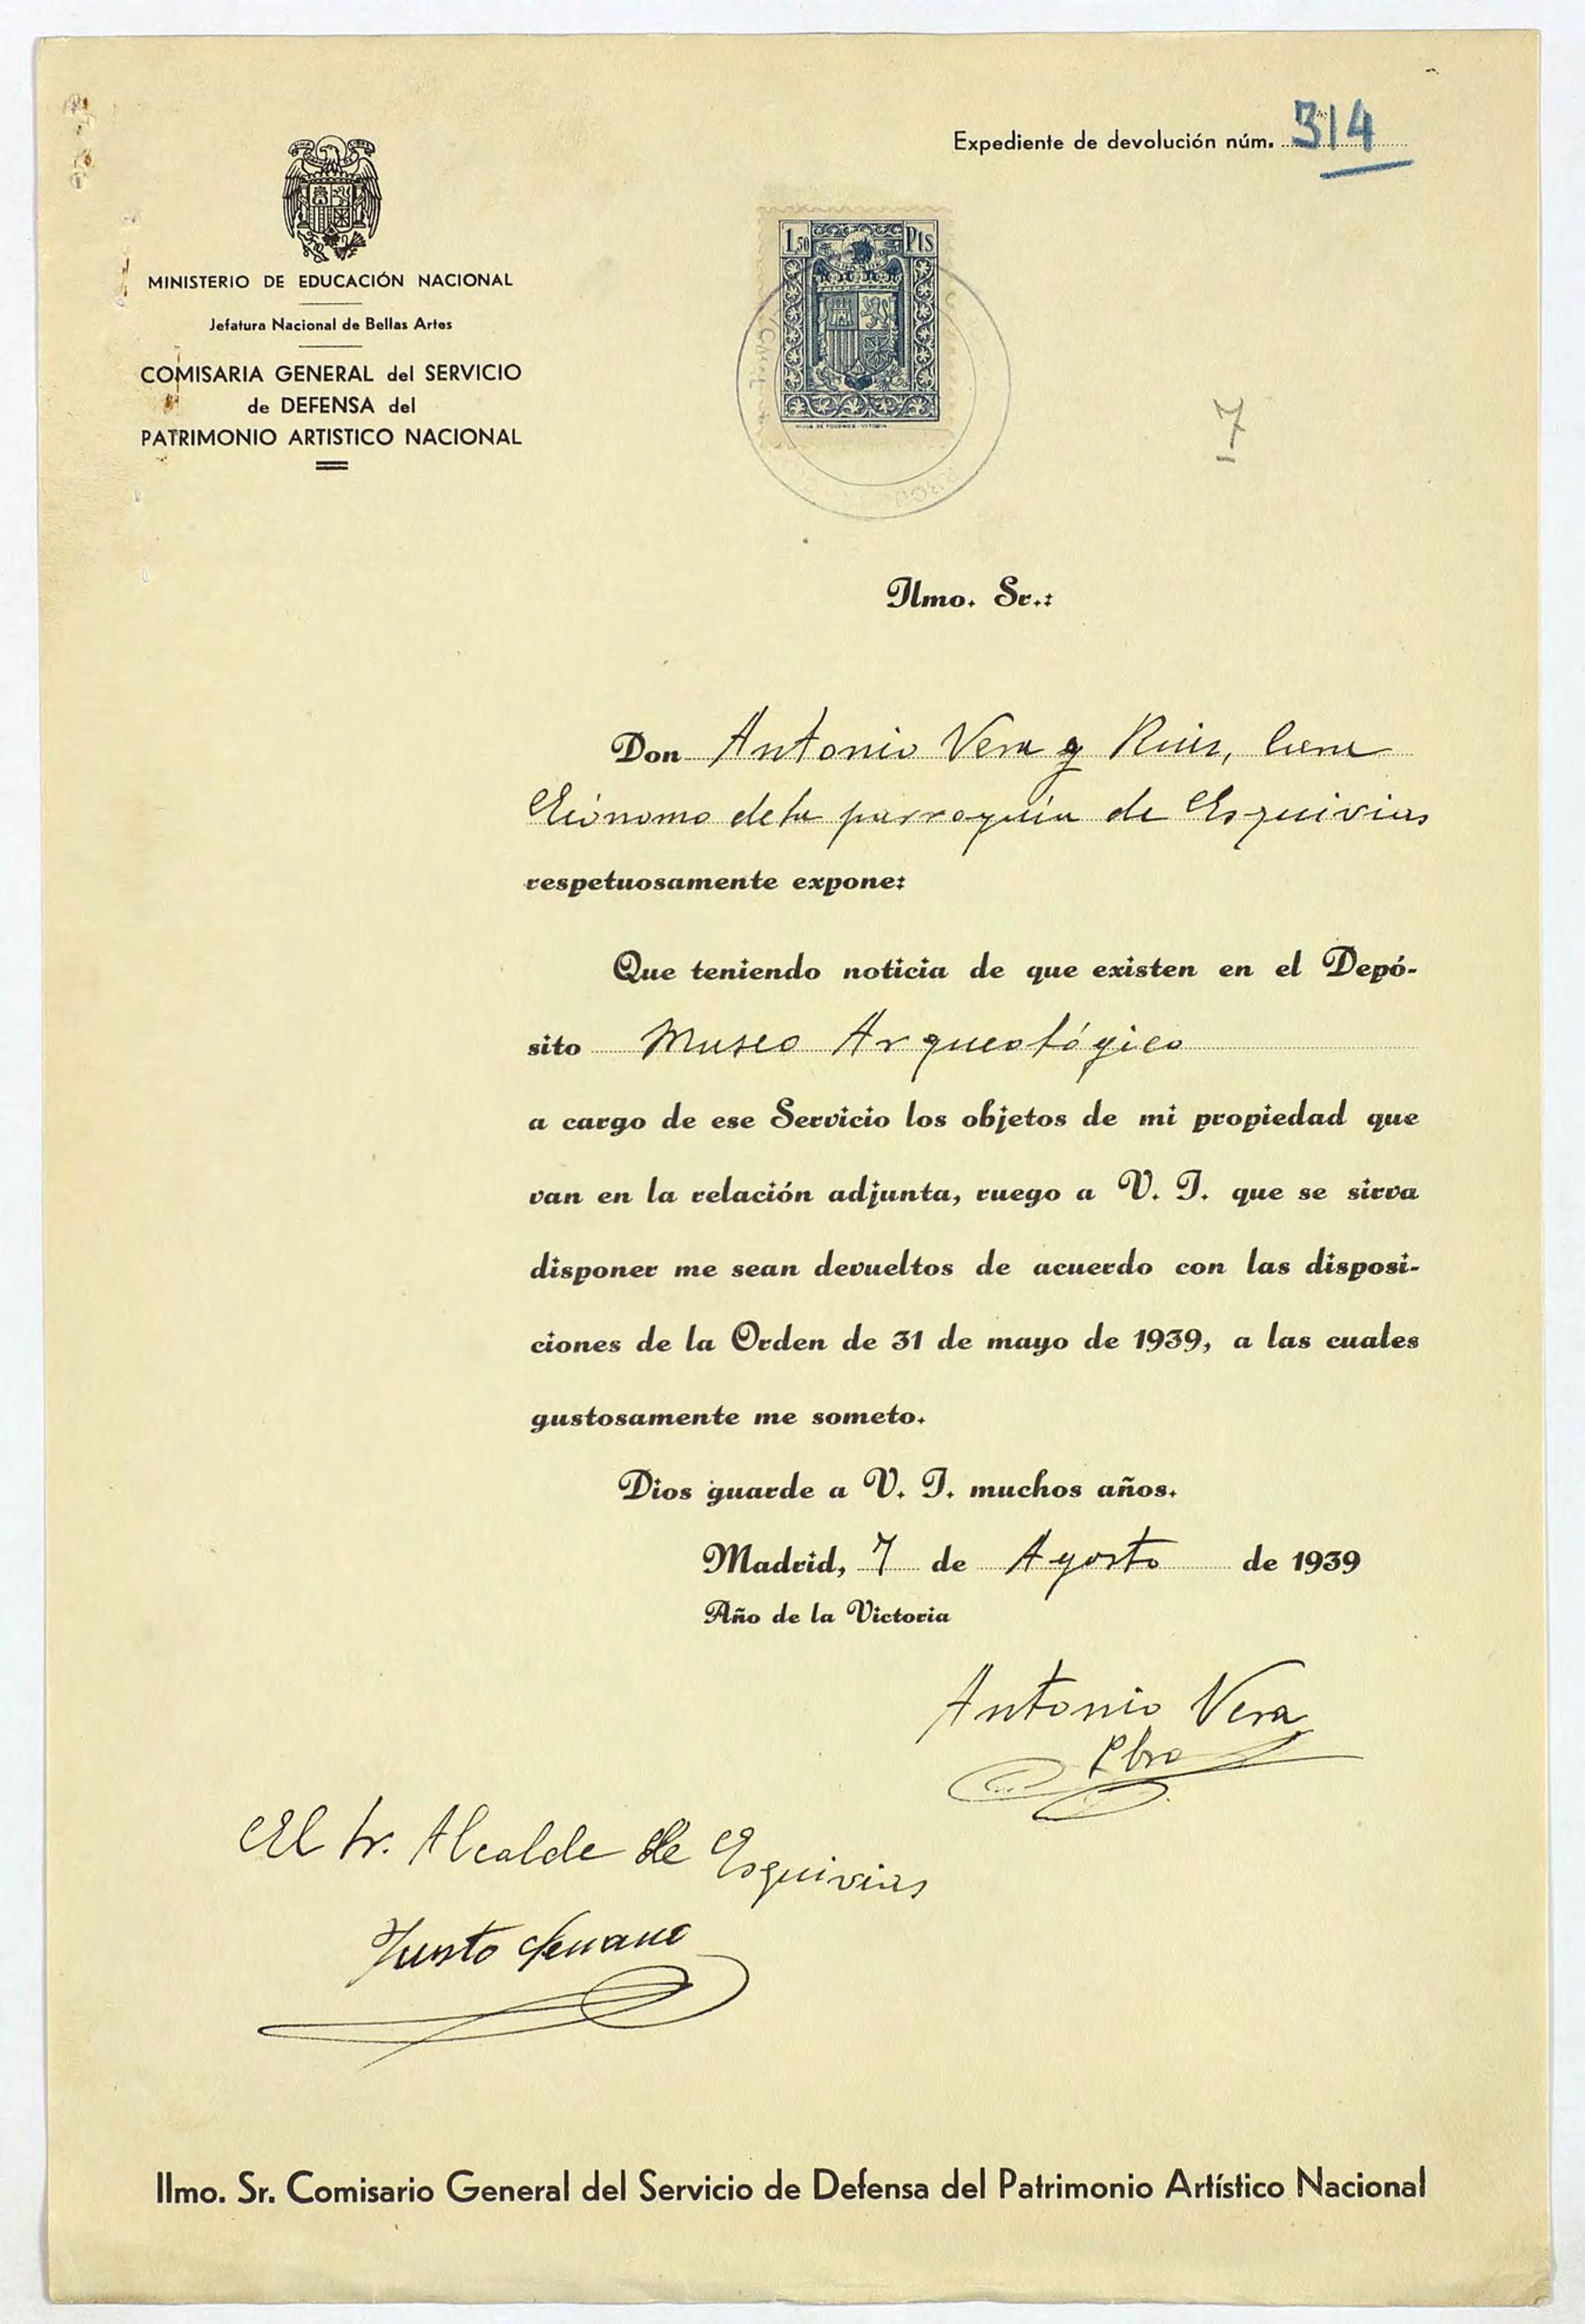 Expediente de devolución núm. 314
MINISTERIO DE EDUCACIÓN NACIONAL
Jefatura Nacional de Bellas Artes
COMISARIA GENERAL del SERVICIO
de DEFENSA del
PATRIMONIO ARTISTICO NACIONAL
1,50 Pts
7
Ilmo. Sr.:
Don Antonio Vera y Ruiz, Cura
Ecónomo de la parroquia de Esquivias
respetuosamente expone:
Que teniendo noticia de que existen en el Depó-
sito Museo Arqueológico
a cargo de ese Servicio los objetos de mi propiedad que
van en la relación adjunta, ruego a V. I. que se sirva
disponer me sean devueltos de acuerdo con las disposi-
ciones de la Orden de 31 de mayo de 1939, a las cuales
gustosamente me someto.
Dios guarde a V. I. muchos años.
Madrid, 7 de Agosto de 1939
Año de la Victoria
Antonio Vera
Pbro
El Sr. Alcalde de Esquivias
Justo
Ilmo. Sr. Comisario General del Servicio de Defensa del Patrimonio Artístico Nacional